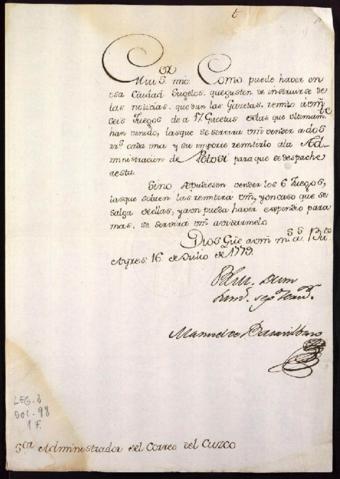 Mui S.r mio. Como puede haver en
esa Ciudad Sugetos, que gusten de instruirse de
las noticias, que dan las Gacetas, remito à vm
seis Juegos de a 17 Gacetas de las que ultimam.te
han venido, las que se servira vm vender a dos
r.s cada una y su importe remitirlo ála Ad-
ministracion de Potosi para que se despache
aesta.
Sino se pudiesen vender los 6 Juegos,
las que sobren las remitira vm, y en caso que se
salga de ellas, y aun pueda haver expendio para
mas, se servira vm avisarmelo.
Dios gũe a vm m.s a.s B.s
Ayres 16 de Julio de 1779.
Manuel de Basavilbaso
LEG. 3
DOC. 98
1 F.
S.or Administrador del Correo del Cuzco